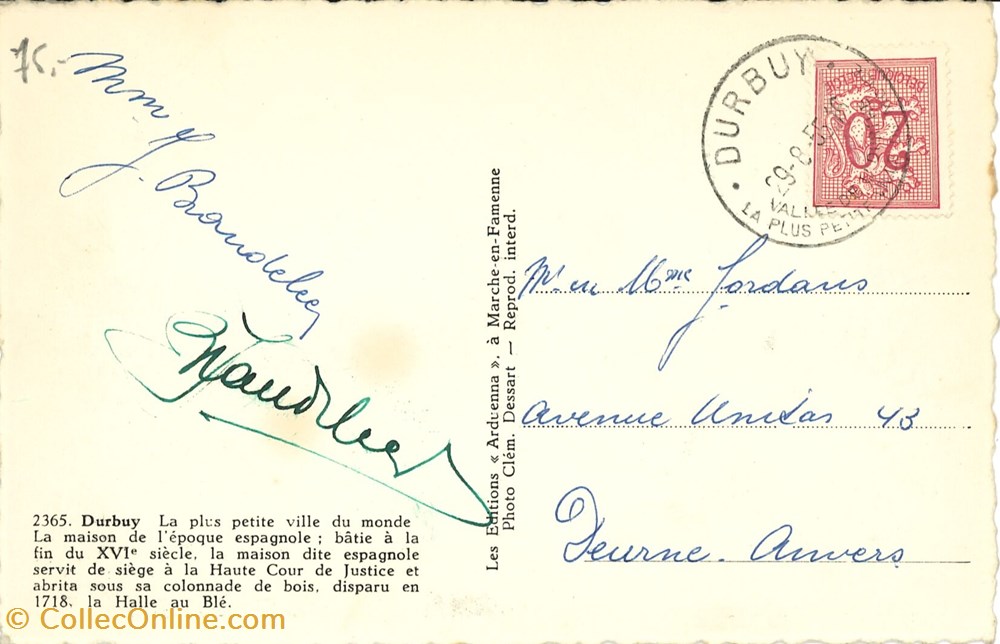 75,-
Mme J. Brandeleer
DURBUY
29-8-55
VALLEE DE
LA PLUS PETITE
BELGIQUE
20
Mr en Mme Jordans
Avenue Unitas 43
Deurne-Anvers
Les Editions « Arduenna », à Marche-en-Famenne
Photo Clém. Dessart — Reprod. interd.
2365. Durbuy La plus petite ville du monde
La maison de l'époque espagnole ; bâtie à la
fin du XVIe siècle, la maison dite espagnole
servit de siège à la Haute Cour de Justice et
abrita sous sa colonnade de bois, disparu en
1718, la Halle au Blé.
© CollecOnline.com